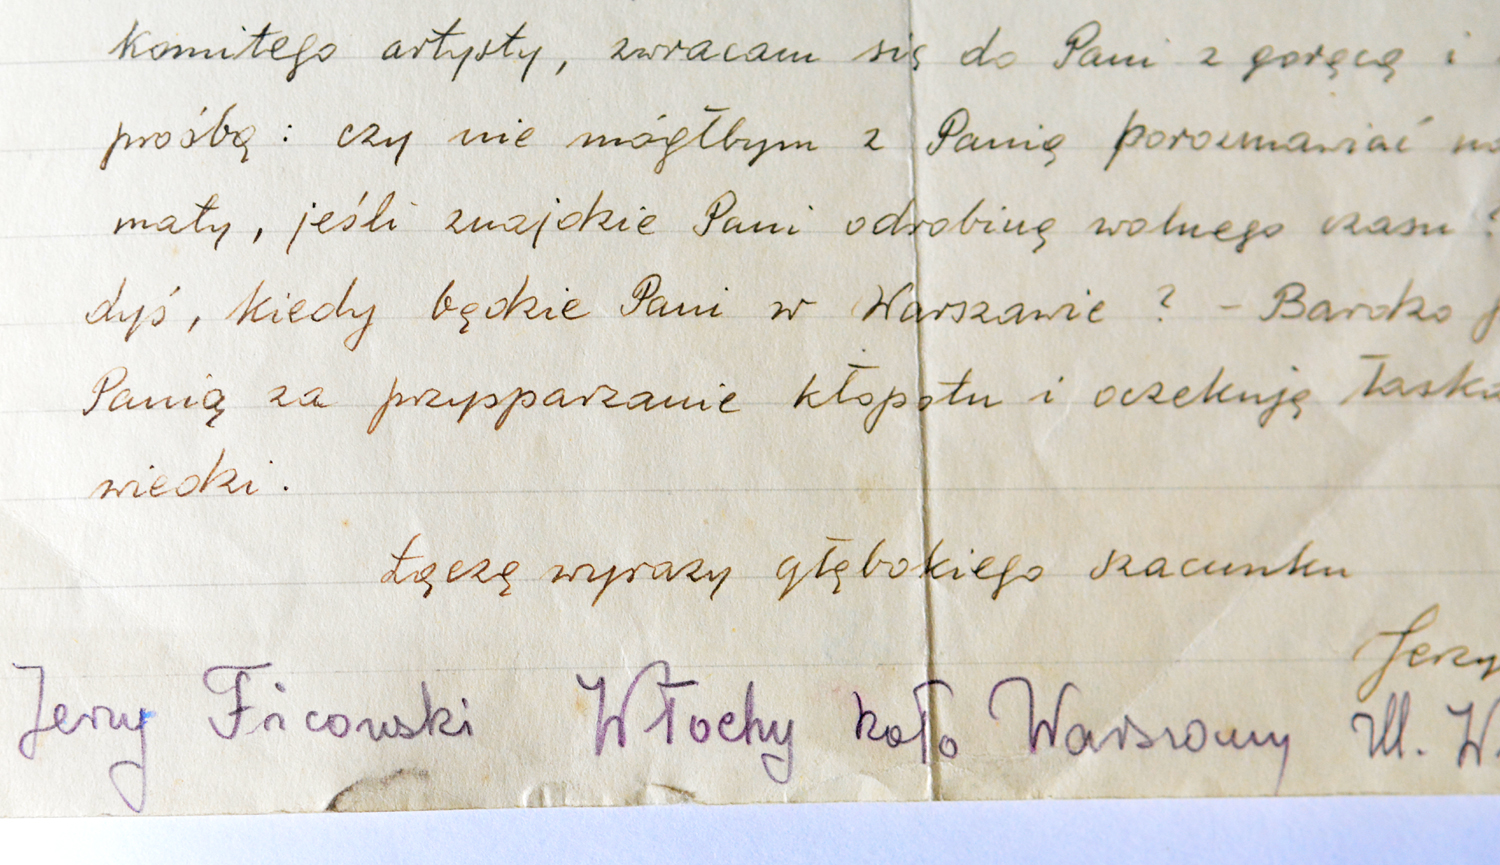 komitego artysty, zwracam się do Pani z gorącą i
prośbą: czy nie mógłbym z Panią porozmawiać na
maty, jeśli znajdzie Pani odrobinę wolnego czasu?
dyś, kiedy będzie Pani w Warszawie? - Bardzo
Panią za przypparzanie kłopotu i oczekuję łaska
wiedzi.
Łączę wyrazy głębokiego szacunku
Jerzy
Jerzy Ficowski Włochy koło Warszawy Ul. W.